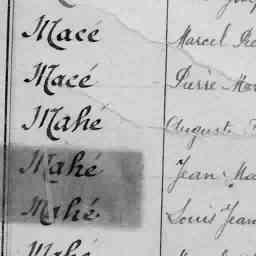 Macé Marcel
Macé Pierre
Mahé Auguste
Mahé Jean
Mahé Louis Jean
Mahé